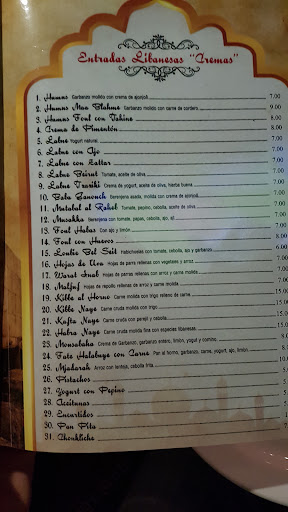 Entradas Libanesas "Cremas"
1. Humus Garbanzo molido con crema de ajonjolí 7.00
2. Humus Mas Blahme Garbanzo molido con carne de cordero 9.00
3. Humus Foul con Tahine 8.00
4. Crema de Pimentón
5. Labne Yogurt natural
6. Labne con Ajo
7. Labne con Zattar
8. Labne Beirut Tomate, aceite de oliva
9. Labne Traniki Crema de yogurt, aceite de oliva, hierba buena
10. Baba Ganouch Berenjena asada, molida con crema de ajonjolí
11. Mutabal al Raheb Tomate, papas, cebolla, aceite de oliva
12. Musakka Berenjena con tomate, papas, cebolla, ajo, ají
13. Foul Halas Con ajo y limón
14. Foul con Huevos
15. Loubie Bel Seit Habichuelas con tomate, cebolla, ajo y garbanzo 6.00
16. Hojas de Uva Hojas de parras rellenas con vegetales y arroz
17. Warat Inab Hojas de parras rellenas con arroz y carne molida
18. Malfuf Hojas de repollo rellenas de arroz y carne molida
19. Kibbe al Horno Carne molida con trigo relleno de carne 15.00
20. Kibbe Naye Carne cruda molida con trigo
21. Kafta Naye Carne cruda con perejil y cebolla
22. Habra Naye Carne cruda molida fina con especies libanesas
23. Monsabaha Crema de Garbanzo, garbanzo entero, limón, yogut y comino
24. Fate Halabuye con Carne Pan al horno, garbanzo, carne, yogurt, ajo, limón
25. Mjadarah Arroz con lenteja, cebolla frita
26. Pistachos
27. Yogurt con Pepino
28. Aceitunas
29. Encurtidos
30. Pan Pita
31. Chonkliche